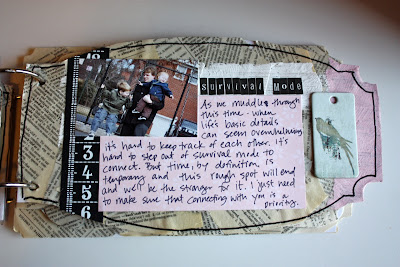 Survival Mode
As we muddle through
this time - when
life's basic details
can seem overwhelming
it's hard to keep track of each other. It's
hard to step out of survival mode to
connect. But time, by definition, is
temporary and this rough spot will end
and we'll be the stronger for it. I just need
to make sure that connecting with you is a
priority.
2
3
4
5
6